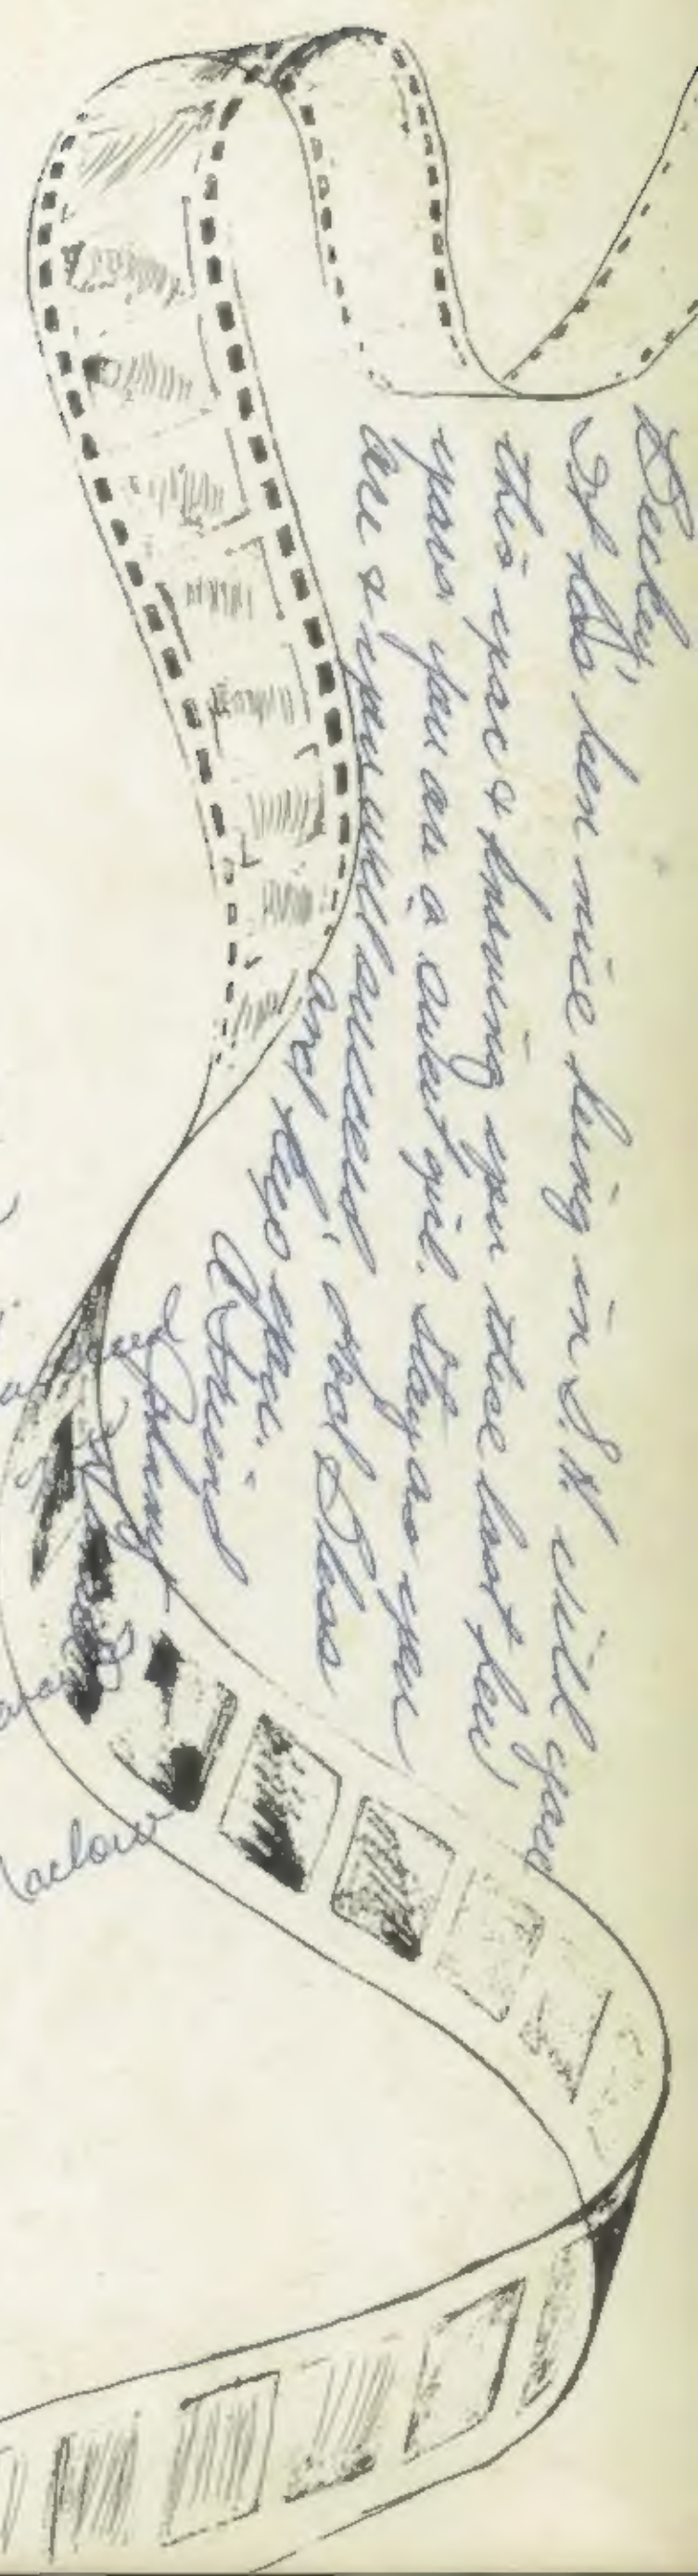 Becky,
It has been nice being in S.H. with you
this year & knowing you these last few
years. You are a sweet girl. Stay as you
are & you will succeed. God Bless
and keep you.
A Friend